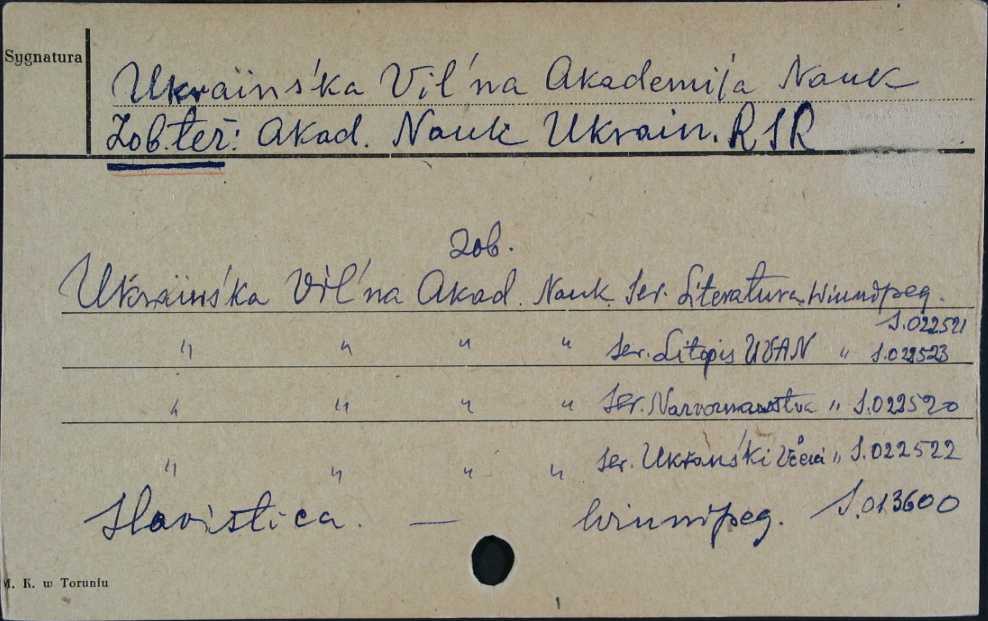 Sygnatura
Ukraïns'ka Vil'na Akademija Nauk
Zob. też: Akad. Nauk Ukrain. RSR
zob.
Ukraïns'ka Vil'na Akad. Nauk. Ser. Literatura. Winnipeg.
S.022521
" " " " ser. Litopis UVAN " S.022523
" " " " ser. " S.022520
" " " " ser. Ukraïns'ki Včeni " S.022522
Slavistica. — Winnipeg. S.013600
M. K. w Toruniu